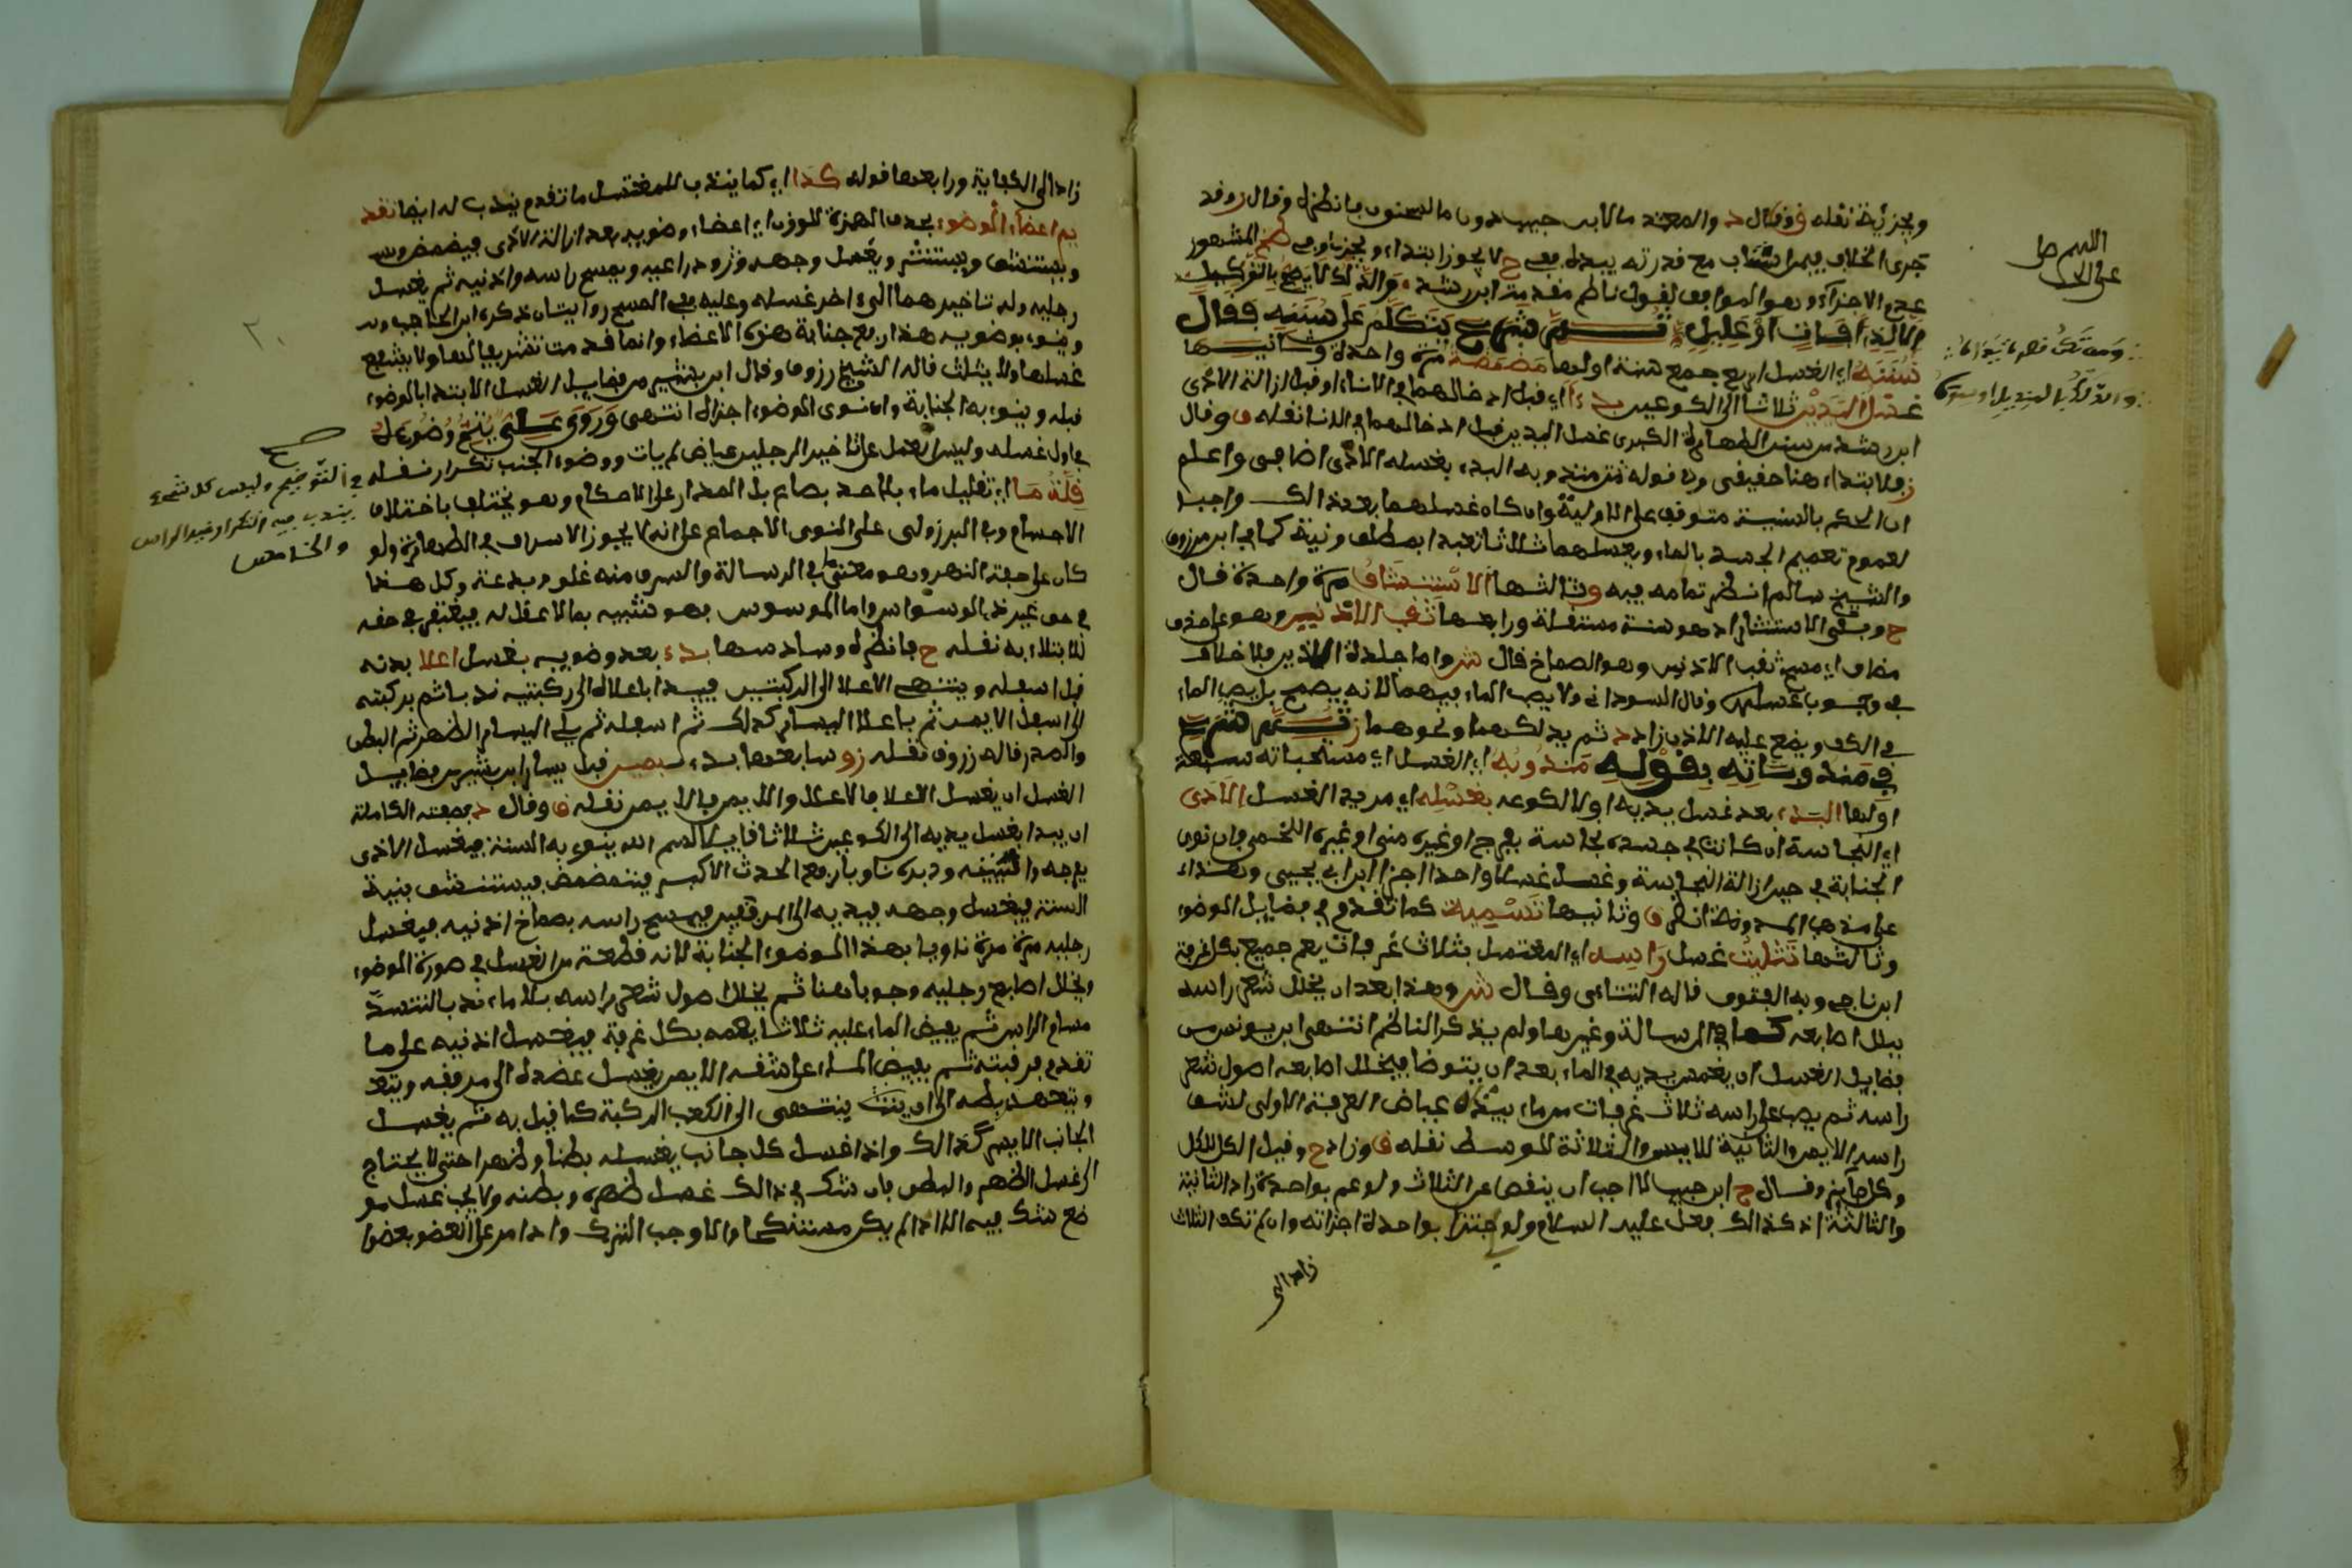 ويجزئه نقله ق وقال د والمعتمد ما لابن حبيب دون ما لسحنون فانظره وقال زوقد
جرى الخلاف فيمن استناب مع قدرته ببدنه ففي ح لا يجوز ابتداء ويجزئ وفي المشهور
عدم الاجزاء وهو الموافق لقول ناظم مقدمة ابن رشد والدلك لا يصح بالتوكيل
الا لذي آفات او عليل ثم شرع يتكلم على سننه فقال
سننه اي الغسل اربع جمع سنة اولها مضمضة مرة واحدة وثانيها
غسل اليدين ثلاثا الى الكوعين بدءا اي قبل ادخالهما في الاناء او قبل ازالة الاذى
ابن رشد من سنن الطهارة الكبرى غسل اليدين قبل ادخالهما في الاناء نقله ق وقال
ز فلابتداء هنا حقيقي وفي قوله في مندوبه البدء بغسله الاذى اضافي واعلم
ان الحكم بالسنية متوقف على الاولية وان كان غسلهما بعد ذالك واجبا
لعموم تعميم الجسد بالماء ويغسلهما ثلاثا تعبدا بمطلق ونية كما في ابن مرزوق
والشيخ سالم انظر تمامه فيه وثالثها الاستنشاق مرة واحدة قال
ح وبقي الاستنثار اذ هو سنة مستقلة ورابعها ثقب الاذنين وهو على حذف
مضاف اي مسح ثقب الاذنين وهو الصماخ قال ش واما جلدة الاذنين فلا خلاف
في وجوب غسلها وقال السوداني ولا يصب الماء فيهما لانه يضر بل يصب الماء
في الكف ويضع عليه الاذن زاد د ثم يدلكهما ونحوهما ز ثم شرع
في مندوباته بقوله مندوبه اي الغسل اي مستحباته سبعة
اولها البدء بعد غسل يديه اولا لكوعيه بغسله اي مريد الغسل الاذى
اي النجاسة ان كانت في جسده نجاسة بفرج او غيره مني او غيره اللخمي وان نوى
الجنابة في حين ازالة النجاسة وغسل غسلا واحدا اجزا ابن ابي يحيى وهذا
على مذهب المدونة انظر ق وثانيها تسمية كما تقدم في فضايل الوضوء
وثالثها تثليث غسل راسه اي المغتسل بثلاث غرفات يعم جميع بكل غرفة
ابن ناجي وبه الفتوى قاله التتائي وقال ش وهذا بعد ان يخلل شعر راسه
ببلل اصابعه كما في الرسالة وغيرها ولم يذكر الناظم انتهى ابن يونس من
فضايل الغسل ان يغمس يديه في الماء بعد ان يتوضا فيخلل اصابعه اصول شعر
راسه ثم يصب على راسه ثلاث غرفات من ماء بيديه عياض الغرفة الاولى لشق
راسه الايمن والثانية للايسر والثلاثة للوسط نقله ق وزاد ح وقيل الكل للكل
وقال ح ابن حبيب لا احب ان ينقص عن الثلاث ولو عم بواحدة زاد الثانية
والثالثة اذ كذالك فعل عليه السلام ولو اجتزا بواحدة اجزاته وان لم تكف الثلاث
زاد الى
اللهم صل
زاد الى الكفاية ورابعها قوله كذا اي كما يندب للمغتسل ما تقدم يندب له ايضا تقد
يم اعضاء الوضوء بحذف الهمزة للوزن اي اعضاء وضويه بعد ازالة الاذى فيتمضمض
ويستنشق ويستنثر ويغسل وجهه وذراعيه ويمسح راسه واذنيه ثم يغسل
رجليه وله تاخيرهما الى اخر غسله وعليه ففي المسح روايتان ذكره ابن الحاجب
وينوي بوضويه هذا رفع جنابة هذه الاعضاء وانما قدمت تشريفا لها ولا يشفع
غسلها ولا يثلث قاله الشيخ زروق وقال ابن بشير من فضايل الغسل الابتداء بالوضوء
قبله وينوي به الجنابة وان نوى الوضوء اجزاه انتهى وروى علي يتم وضوءه
في اول غسله وليس العمل على تاخير الرجلين عياض لم يات ووضوء الجنب تكرار نقله في التوضيح وليس كل شيء
قلة ما اي تقليل ماء بلا حد بصاع بل المدار على الاحكام وهو يختلف باختلاف
يندب فيه التكرار غير الراس
والخامس
صح
الاجسام وفي البرزولي على النووي الاجماع على انه لا يجوز الاسراف في الطهارة ولو
كان على ضفة النهر وهو معنى ما في الرسالة والسرف منه غلو وبدعة وكل هذا
في حق غير ذي الوسواس واما الموسوس فهو شبيه بمن لا عقل له فيغتفر في حقه
لابتلائه به نقله ح فانظره وسادسها بدء بعد وضويه بغسل اعلا بدنه
قبل اسفله وينتهي الاعلا الى الركبتين فيبدا باعلاه الى ركبتيه ندبا ثم بركبته
الى اسفل الايمن ثم باعلا اليسار كذلك ثم اسفله ثم يلي اليسار الظهر ثم البطن
والصدر قاله زروق نقله ز وسابعها بدء بيمين قبل يسار ابن بشير من فضايل
الغسل ان يغسل الاعلا فالاعلا والايمن فالايمن نقله ق وقال د وصفته الكاملة
ان يبدا بغسل يديه الى الكوعين ثلاثا قايلا بسم الله ينوي به السنة فيغسل الاذى
بفرجه وانثييه ودبره ناويا رفع الحدث الاكبر فيتمضمض فيستنشق بنية
السنة فيغسل وجهه فيديه الى المرفقين فيمسح راسه فصماخ اذنيه فيغسل
رجليه مرة مرة ناويا بهذا الوضوء الجنابة لانه قطعة من الغسل في صورة الوضوء
ويخلل اصابع رجليه وجوبا هنا ثم يخلل اصول شعر راسه بلا ماء ندبا لتنسد
مسام الراس ثم يفيض الماء عليه ثلاثا يعمه بكل غرفة فيغسل اذنيه على ما
تقدم فرقبته ثم يفيض الماء على شقه الايمن يغسل عضده الى مرفقه ويتع
ويتعهد ابطه الى ان ينتهي الى الكعب الركبة كما قيل به ثم يغسل
الجانب الايسر كذالك واذا غسل كل جانب يغسله بطنا وظهرا حتى لا يحتاج
الى غسل الظهر والبطن فان شك في ذالك غسل ظهره وبطنه ولا يجب غسل مو
ضع شك فيه الا اذا لم يكن مستنكحا والا وجب الترك واذا مر على العضو بعضو
٢٠